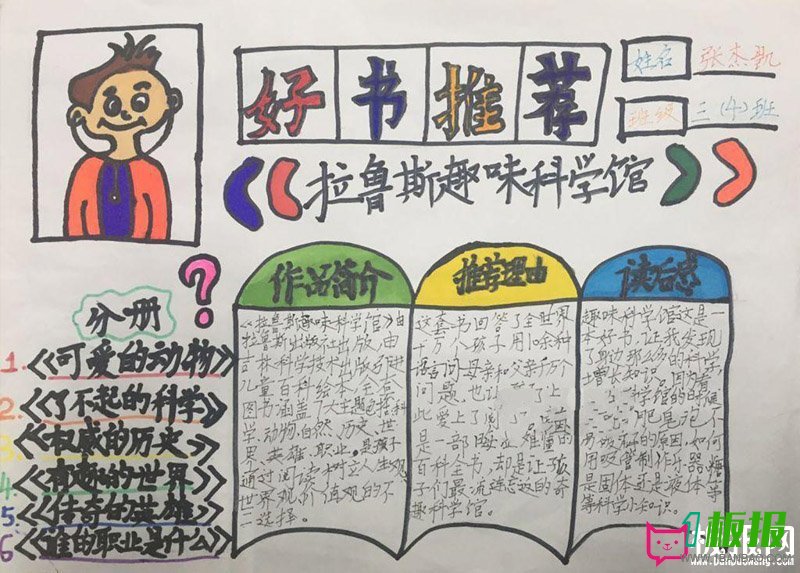 好书推荐
姓名 张杰凯
班级 三(4)班
《《拉鲁斯趣味科学馆》》
分册
1.《可爱的动物》
2.《了不起的科学》
3.《权威的历史》
4.《有趣的世界》
5.《传奇的英雄》
6《谁的职业是什么》
作品简介
《拉鲁斯趣味科学馆》由
拉鲁斯出版社出版,由
吉林科学技术出版引进
儿童百科绘本,全套
图书涵盖了大主题包括科
学、动物、自然、历史、世
界、英雄、职业,是孩子
通过阅读,树立人生观,
世界观,价值观的不
二选择。
推荐理由
这套书回答了全世界
十万个孩子用10余种
语言问母亲和父亲千万个
问题,也让 了上
此爱上了
是一部 难懂的
百科全书,却是让孩
子们最流连忘返的奇
趣科学馆。
读后感
趣味科学馆这是一
本好书,让我发现
了身边那么多的科学
增长知识。因为看
科学馆的时候
吧是泡不
断吸好的原因,如何
用吸管制作乐器,
是固体还是液体等
等科学小知识。
1板报
WWW.1BANBAO.COM